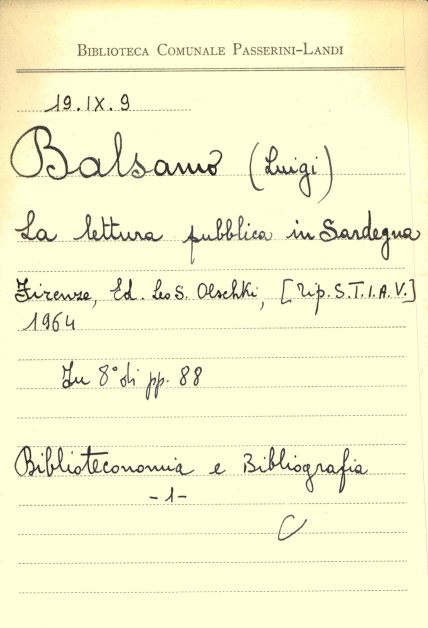 BIBLIOTECA COMUNALE PASSERINI-LANDI
19.IX.9
Balsamo (Luigi)
La lettura pubblica in Sardegna
Firenze, Ed. Leo S. Olschki, [Tip. S.T.I.A.V.]
1964
In 8° di pp. 88
Biblioteconomia e Bibliografia
-1-
C